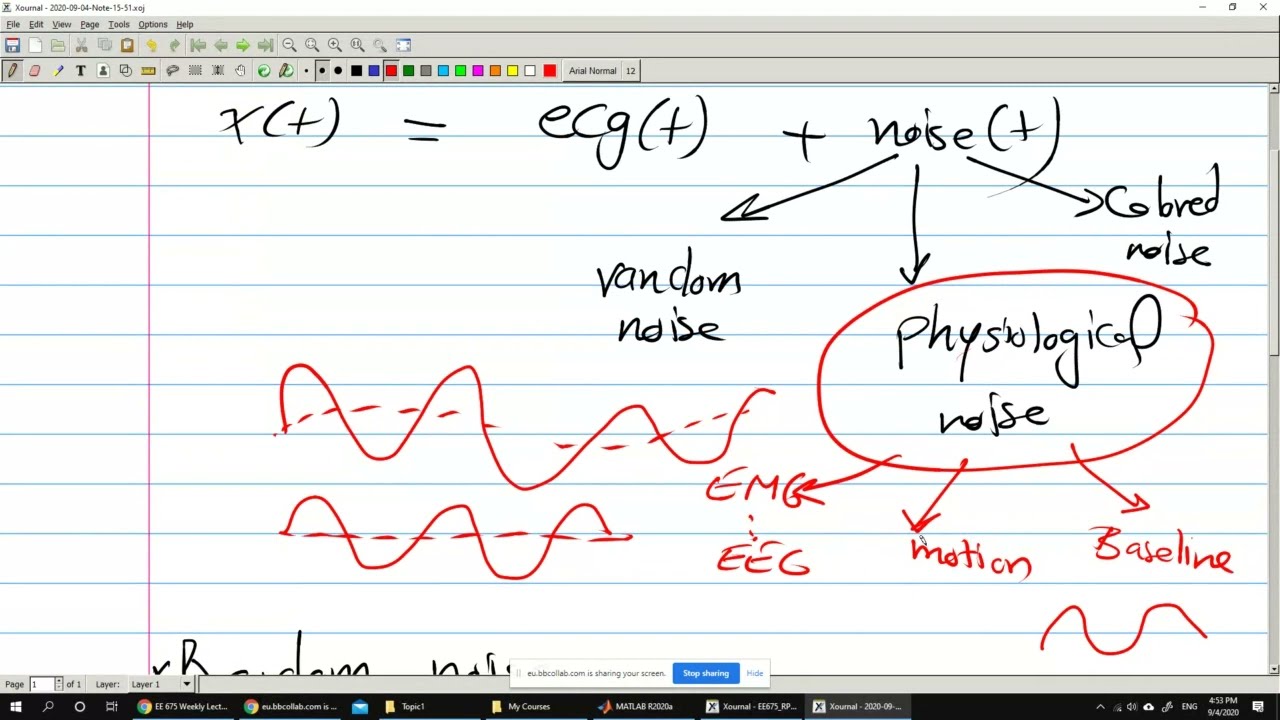 Xournal - 2020-09-04-Note-15-51.xoj
File Edit View Page Tools Options Help
T
Arial Normal 12
x(t) = ecg(t) + noise(t)
random
noise
Colored
noise
physiological
noise
EMG
EEG
motion
Baseline
Random noise
eu.bbcollab.com is sharing your screen. Stop sharing Hide
Page 1 of 1 Layer: Layer 1
EE 675 Weekly Lect...
eu.bbcollab.com is ...
Topic1
My Courses
MATLAB R2020a
Xournal - EE675_RP...
Xournal - 2020-09-...
ENG
4:53 PM
9/4/2020